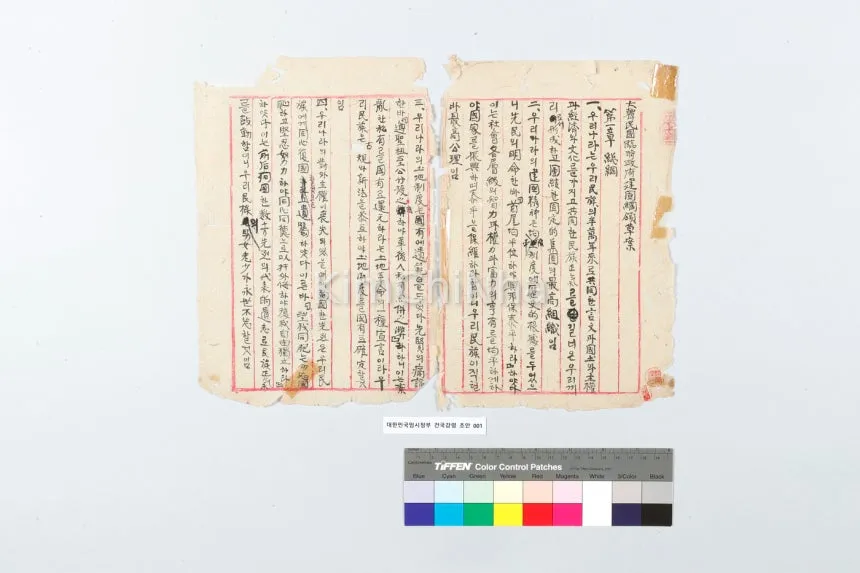 大韓民國臨時政府建國綱領草案
第一章 總綱
一. 우리나라는 우리民族의 半萬年來로 共同한 言文과 國土와 主權
과 經濟와 文化를 가지고 共同한 民族正氣를 길너온 우리끼
리 形成하고 團結한 固定的 集團의 最高組織임
二. 우리나라의 建國精神은 均制度에 歷史的 根據를 두었으
니 先民의 明命한바 首尾均平位하야 興邦保泰平하리라 하였다
이는 社會各層級의 智力과 權力과 富力의 享有를 均平하게하
야 國家를 振興하며 太平을 保維하랴 함이니 우리民族이 직현
바 最高公理임
三. 우리나라의 土地制度는 國有에 遺 을 두었다 先賢의 痛論
한바 遵聖祖至公分授之 하야 革後人私 併之弊 하니 이는 紊
亂한 私有를 國有로 還元하라는 土地革命의 一種宣言이라 우
리民族은 古規와 新法을 參互하야 土地制度를 國有로 確定할것
임
四. 우리나라의 對外主權이 喪失되었을때에 殉國한 先烈은 우리民
族에게 同心復國 遺囑하였다 이른바 望我同胞는 勿忘國
恥하고 堅忍努力하야 同心同德으로 以捍外侮하야 復我自由獨立하라
하였다 이는 前後殉國한 數十萬先烈의 代表的遺志로 民族正氣
를 鼓動함이니 우리民族의 男女老少가 永世不忘할것임
대한민국임시정부 건국강령 초안 001
TIFFEN Color Control Patches
Blue Cyan Green Yellow Red Magenta White 3/Color Black